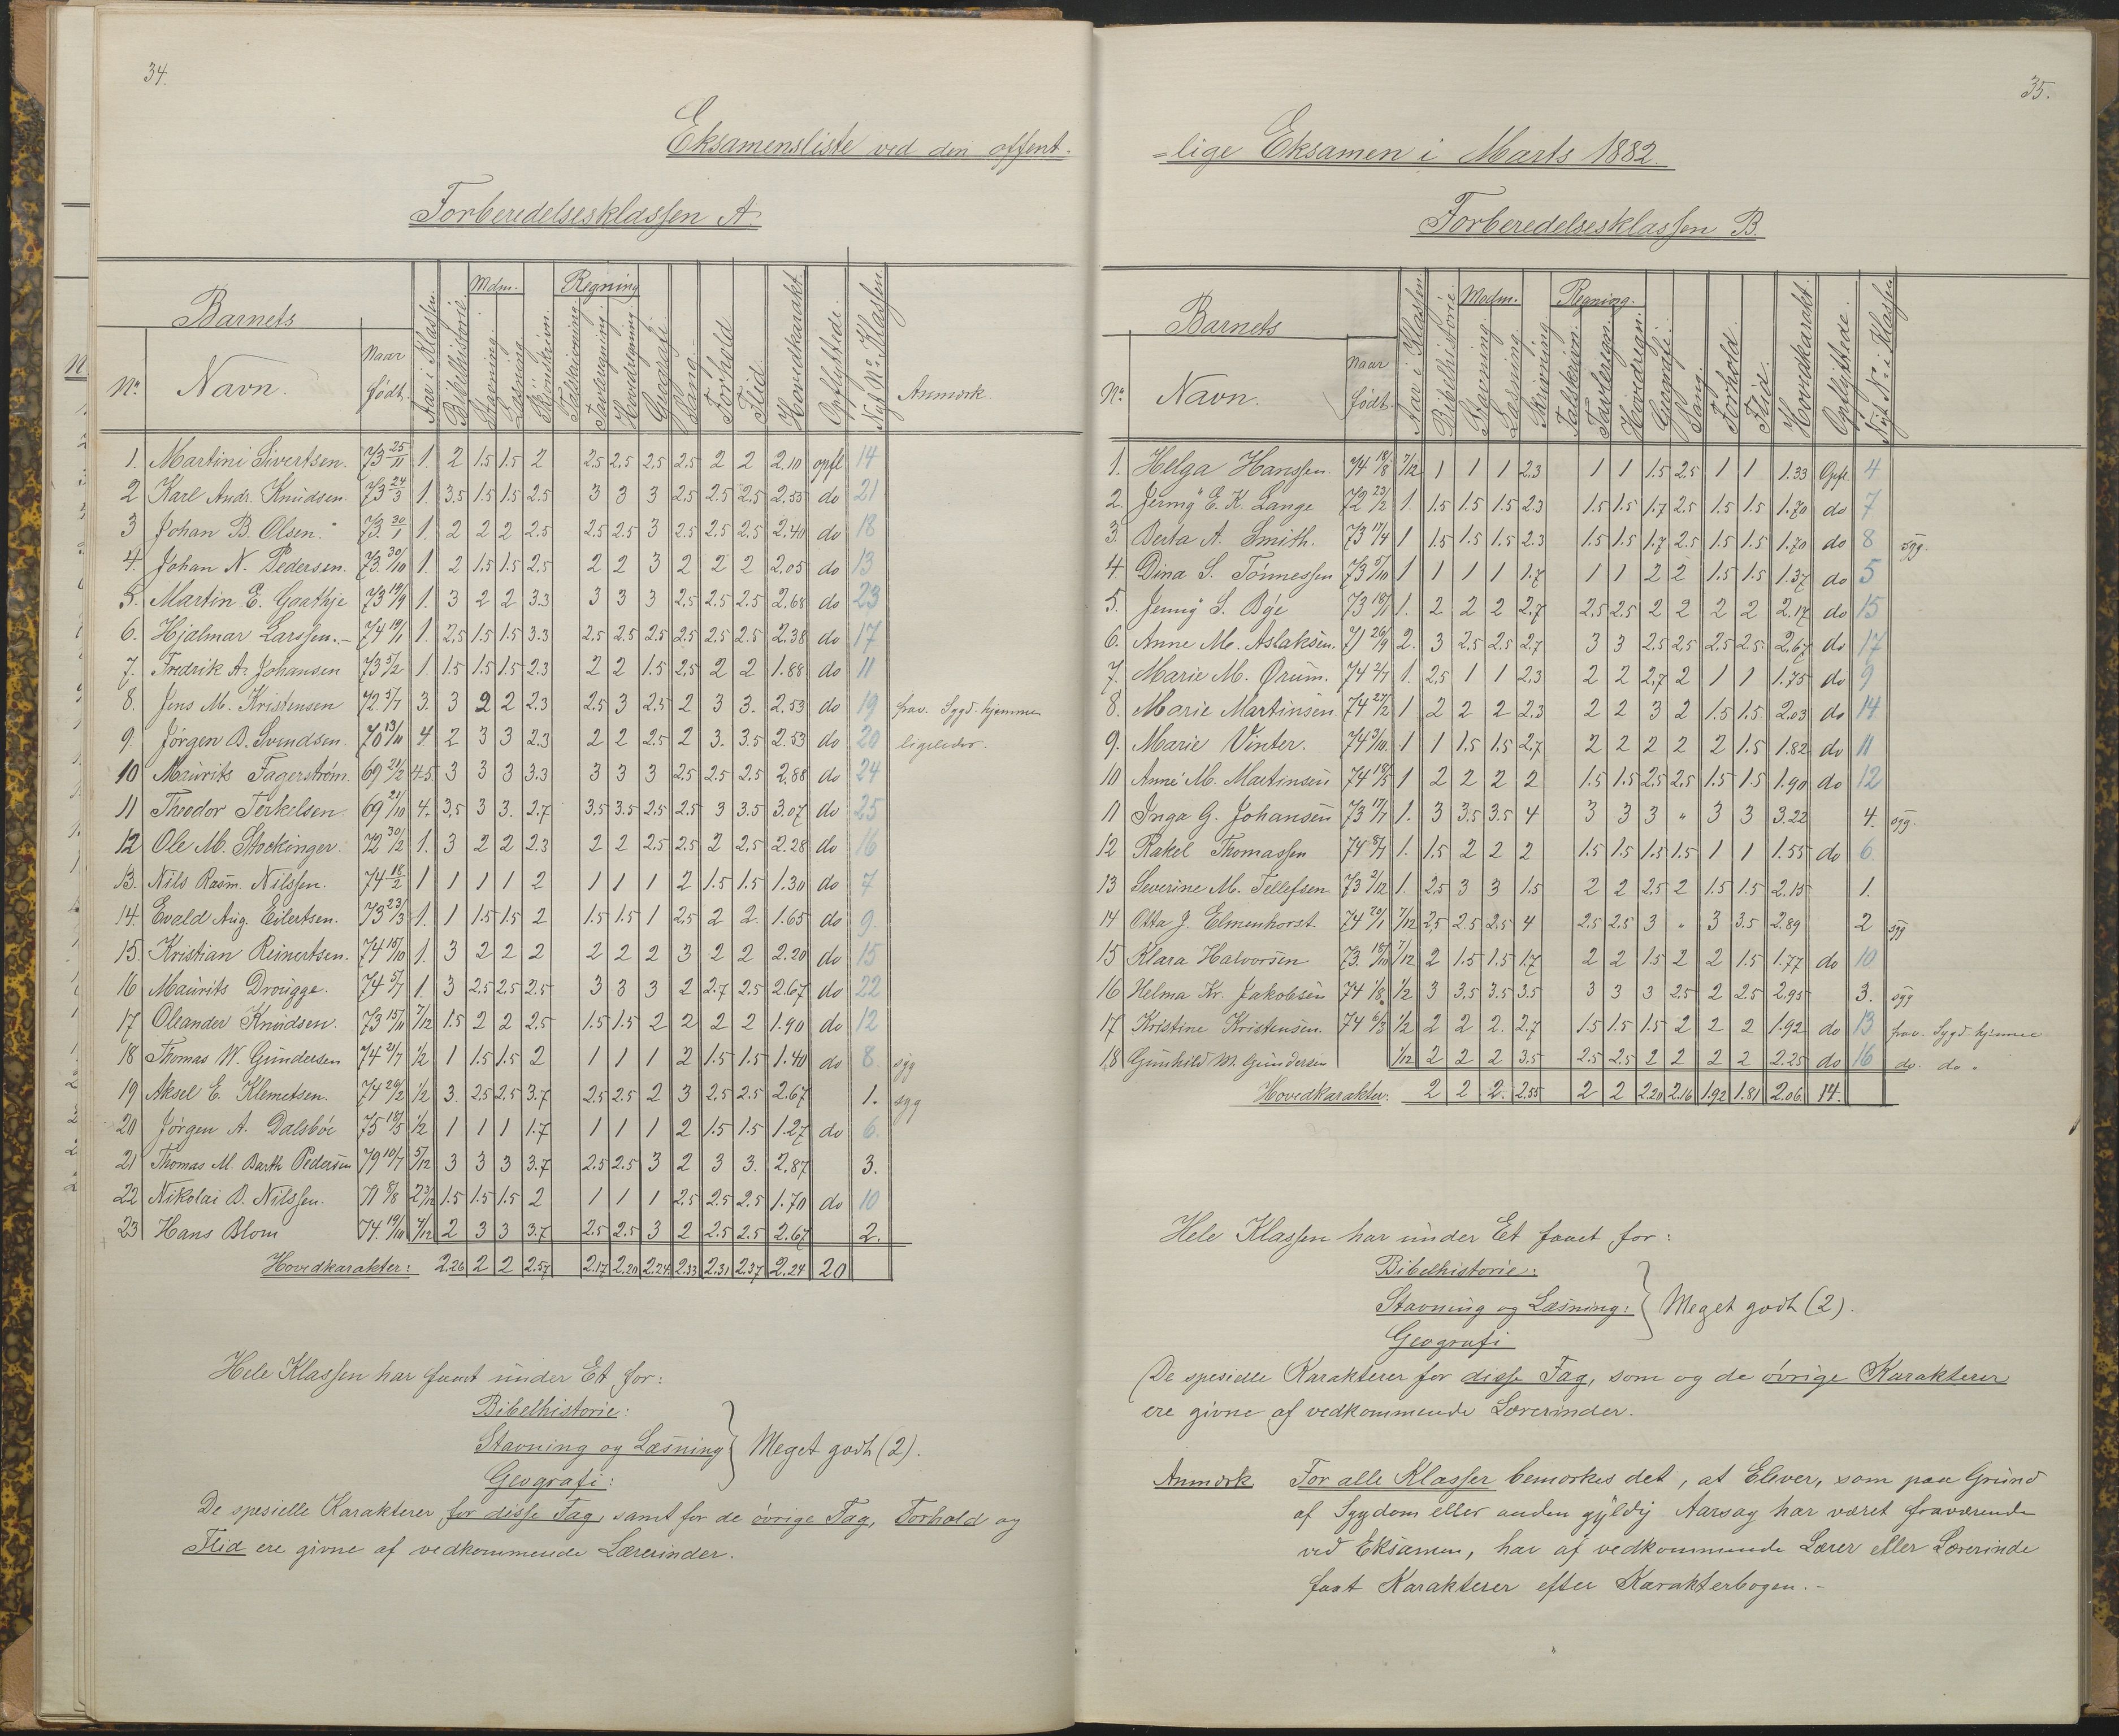 34.
Eksamensliste ved den offent-
Forberedelsesklassen A.
Barnets
Mdm. Regning
No. Navn. Naar født. Aar i Klassen. Bibelhistorie. Stavning. Læsning Skjönskrivn. Talskrivning. Tavleregning Hovedregning Geografi Sang. Forhold Flid. Hovedkarakt. Opflyttede. Nyt No. i Klassen Anmærk.
1. Martini Sivertsen. 73 25/11 1. 2 1.5 1.5 2 2.5 2.5 2.5 2.5 2 2 2.10 opfl 14
2 Karl Andr. Knudsen. 73 24/3 1. 3.5 1.5 1.5 2.5 3 3 3 2.5 2.5 2.5 2.55 do 21
3 Johan B. Olsen. 73. 30/1 1. 2 2 2 2.5 2.5 2.5 3 2.5 2.5 2.5 2.40 do 18
4. Johan N. Pedersen. 73. 30/10 1. 2 1.5 1.5 2.5 2 2 3 2 2 2 2.05 do 13
5. Martin E. Gaathje 73 19/9 1. 3 2 2 3.3 3 3 3 2.5 2.5 2.5 2.68 do 23
6. Hjalmar Larssen.- 74 19/1 1. 2.5 1.5 1.5 3.3 2.5 2.5 2.5 2.5 2.5 2.5 2.38 do 17
7. Fredrik A. Johansen 73 5/2 1. 1.5 1.5 1.5 2.3 2 2 1.5 2.5 2 2 1.88 do 11
8. Jens M. Kristensen 72 5/7 3. 3 2 2 2.3 2.5 3 2.5 2 3 3. 2.53 do 19 frav. Sygd. hjemme
9. Jörgen B. Svendsen. 70 13/11 4. 2 3 3 2.3 2 2 2.5 2 3. 3.5 2.53 do 20 ligeledes.
10 Maurits Fagerström. 69 21/2 4.5 3 3 3 3.3 3 3 3 2.5 2.5 2.5 2.88 do 24
11 Theodor Terkelsen 69 21/10 4. 3.5 3 3. 2.7 3.5 3.5 2.5 2.5 3 3.5 3.07 do 25
12 Ole M. Stockinger. 72 30/12 1. 3 2 2 2.3 2 2 2.5 2.5 2 2.5 2.28 do 16
13. Nils Rasm. Nilssen. 74 18/2 1 1 1 1 2 1 1 1 2 1.5 1.5 1.30 do 7
14. Evald Aug. Eilertsen. 73 23/3 1. 1 1.5 1.5 2 1.5 1.5 1 2.5 2 2. 1.65 do 9.
15 Kristian Reinertsen. 74 15/10 1. 3 2 2 2 2 2 2 3 2 2 2.20 do 15
16 Maurits Drougge. 74 5/7 1 3 2.5 2.5 2.5 3 3 3 2 2.7 2.5 2.67 do 22
17 Oleander Knudsen. 73 15/11 7/12 1.5 2 2 2.5 1.5 1.5 2 2 2 2 1.90 do 12
18 Thomas W. Gundersen 74 21/7 1/2 1 1.5 1.5 2 1 1 1 2 1.5 1.5 1.40 do 8 syg
19 Aksel E. Klemetsen. 74 20/2 1/2 3. 2.5 2.5 3.7 2.5 2.5 2 3 2.5 2.5 2.67 1. syg
20 Jörgen A. Dalsböe 75 18/5 1/2 1 1 1 1.7 1 1 1 2 1.5 1.5 1.27 do 6.
21 Thomas M. Barth Pedersen 79 10/7 5/12 3 3 3 3.7 2.5 2.5 3 2 3 3. 2.87 3.
22 Nikolai B. Nilssen. 71 8/8 2 3/12 1.5 1.5 1.5 2 1 1 1 2.5 2.5 2.5 1.70 do 10
23 Hans Blom 74. 19/10 7/12 2 3 3 3.7 2.5 2.5 3 2 2.5 2.5 2.67 2.
Hovedkarakter: 2.26 2 2 2.57 2.17 2.20 2.24 2.33 2.31 2.37 2.24 20
Hele Klassen har faaet under Et for:
Bibelhistorie:
Stavning og Læsning } Meget godt (2).
Geografi:
De spesielle Karakterer for disse Fag, samt for de övrige Fag, Forhold og
Flid ere givne af vedkommende Lærerinder.
35.
=lige Eksamen i Marts 1882.
Forberedelsesklassen B.
Barnets
Modm. Regning.
No. Navn. Naar födt Aar i Klassen Bibelhistorie. Stavning Læsning. Skrivning Talskrivn. Tavleregn. Hovedregn. Geografi. Sang. Forhold. Flid. Hovedkarakt. Opflyttede. Nyt No. i Klassen
1. Helga Hanssen. 74 18/8 7/12 1 1 1 2.3 1 1 1.5 2.5 1 1 1.33 Opfl. 4
2. Jenny E. K. Lange 72 23/12 1. 1.5 1.5 1.5 2.3 1.5 1.5 1.7 2.5 1.5 1.5 1.70 do 7
3. Berta A. Smith. 73 17/4 1 1.5 1.5 1.5 2.3 1.5 1.5 1.7 2.5 1.5 1.5 1.70 do 8 syg.
4. Dina S. Tönnessen 73 5/10 1 1 1 1 1.7 1 1 2 2 1.5 1.5 1.37 do 5
5. Jenny S. Bye 73 18/11 1. 2 2 2 2.7 2.5 2.5 2 2 2 2 2.17 do 15
6. Anne M. Aslaksen. 71 26/9 2. 3 2.5 2.5 2.7 3 3 2.5 2.5 2.5 2.5 2.67 do 17
7. Marie M. Ørum. 74 2/7 1. 2.5 1 1 2.3 2 2 2.7 2 1 1 1.75 do 9
8. Marie Martinsen. 74 27/2 1 2 2 2 2.3 2 2 3 2 1.5 1.5 2.03 do 14
9. Marie Vinter. 74 3/10 1 1 1.5 1.5 2.7 2 2 2 2 2 1.5 1.82 do 11
10 Anne M. Martinsen 74 18/5 1 2 2 2 2 1.5 1.5 2.5 2.5 1.5 1.5 1.90 do 12
11 Inga G. Johansen 73 17/7 1. 3 3.5 3.5 4 3 3 3 " 3 3 3.22 4. syg.
12 Rakel Thomassen 74 8/7 1. 1.5 2 2 2 1.5 1.5 1.5 1.5 1 1 1.55 do 6
13 Severine M. Tellefsen 73 21/12 1. 2.5 3 3 1.5 2 2 2.5 2 1.5 1.5 2.15 1.
14 Otta J. Elmenhorst 74 20/1 7/12 2.5 2.5 2.5 4 2.5 2.5 3 " 3 3.5 2.89 2 syg
15 Klara Halvorsen 73. 18/10 7/12 2 1.5 1.5 1.7 2 2 1.5 2 2 1.5 1.77 do 10
16 Helma Kr. Jakobsen 74 1/8 1/2 3 3.5 3.5 3.5 3 3 3 2.5 2 2.5 2.95 3. syg
17 Kristine Kristensen. 74 6/3 1/2 2 2 2. 2.7 1.5 1.5 1.5 2 2 2 1.92 do 13 frav. Sygd. hjemme
18 Gunhild M. Gundersen 1/12 2 2 2 3.5 2.5 2.5 2 2 2 2 2.25 do 16 do. do.
Hovedkarakter: 2 2 2. 2.55 2 2 2.20 2.16 1.92 1.81 2.06 14.
Hele Klassen har under Et faaet for:
Bibelhistorie:
Stavning og Læsning: } Meget godt (2).
Geografi
De spesielle Karakterer for disse Fag, som og de övrige Karakterer
ere givne af vedkommende Lærerinder.
Anmærk For alle Klasser bemærkes det, at Elever, som paa Grund
af Sygdom eller anden gyldig Aarsag har været fraværende
ved Eksamen, har af vedkommende Lærer eller Lærerinde
faat Karakterer efter Karakterbogen.-